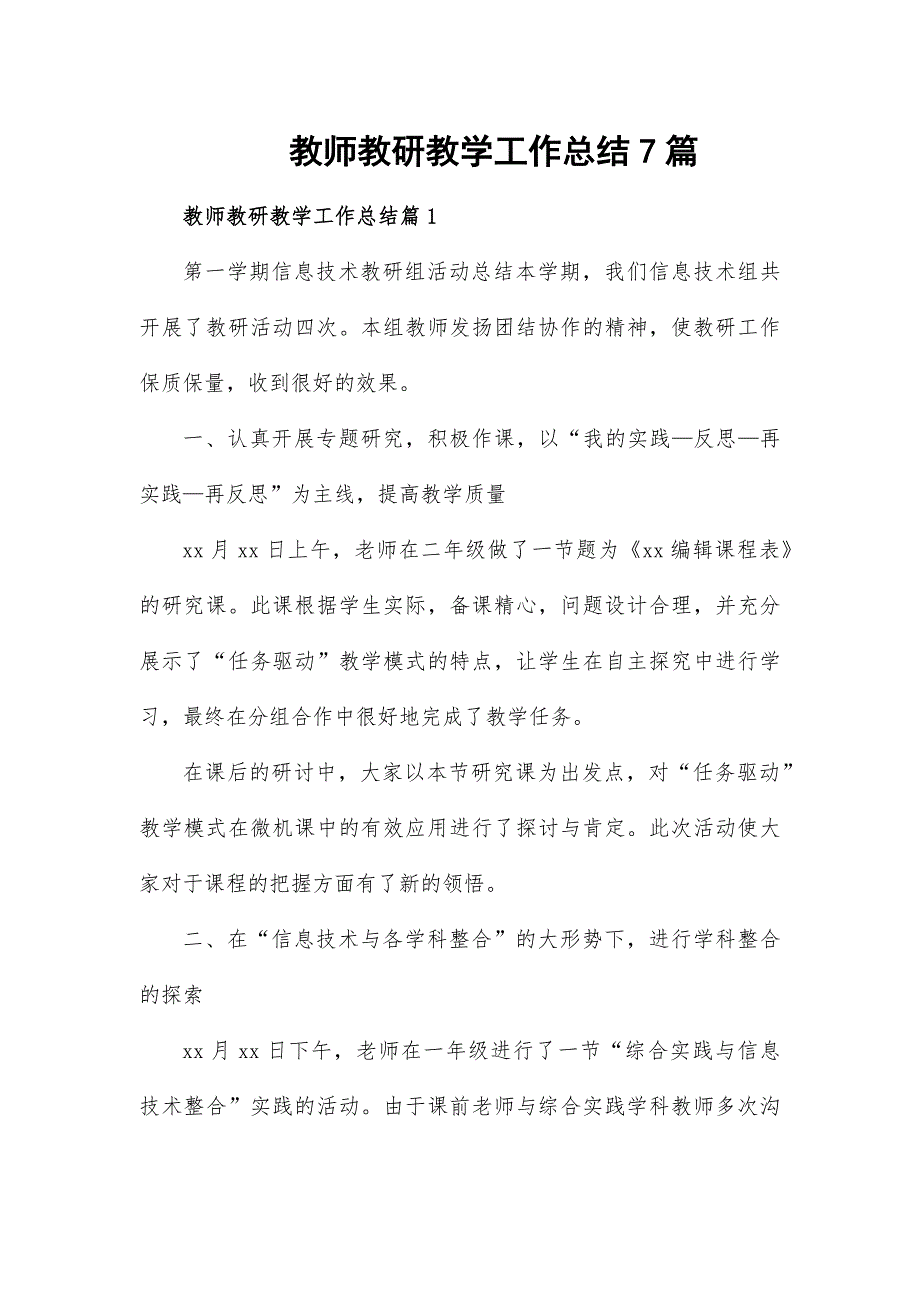 教师教研教学工作总结 7 篇
教师教研教学工作总结篇 1
第一学期信息技术教研组活动总结本学期，我们信息技术组共
开展了教研活动四次。本组教师发扬团结协作的精神，使教研工作
保质保量，收到很好的效果。
一、认真开展专题研究，积极作课，以“我的实践—反思—再
实践—再反思”为主线，提高教学质量
xx 月 xx 日上午，老师在二年级做了一节题为《xx 编辑课程表》
的研究课。此课根据学生实际，备课精心，问题设计合理，并充分
展示了“任务驱动”教学模式的特点，让学生在自主探究中进行学
习，最终在分组合作中很好地完成了教学任务。
在课后的研讨中，大家以本节研究课为出发点，对“任务驱动”
教学模式在微机课中的有效应用进行了探讨与肯定。此次活动使大
家对于课程的把握方面有了新的领悟。
二、在“信息技术与各学科整合”的大形势下，进行学科整合
的探索
xx 月 xx 日下午，老师在一年级进行了一节“综合实践与信息
技术整合”实践的活动。由于课前老师与综合实践学科教师多次沟